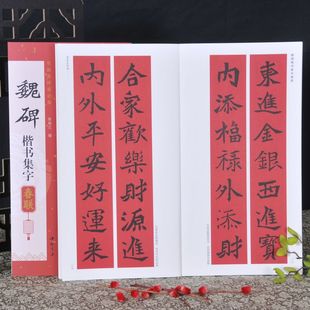 魏碑
楷书集字
春联
合家歡樂財源進
内外平安好運来
東進金銀西進寶
内添福禄外添財